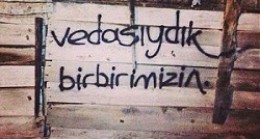 vedasıydık
birbirimizin.